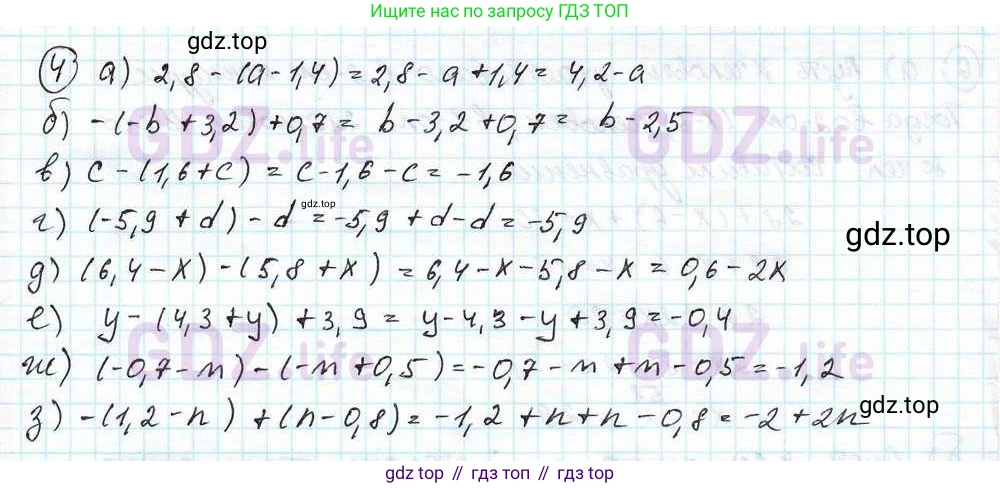 Ищите нас по запросу ГДЗ ТОП
gdz.top
4) а) 2,8 - (a - 1,4) = 2,8 - a + 1,4 = 4,2 - a
б) -(-b + 3,2) + 0,7 = b - 3,2 + 0,7 = b - 2,5
в) c - (1,6 + c) = c - 1,6 - c = -1,6
gdz.top
г) (-5,9 + d) - d = -5,9 + d - d = -5,9
gdz.top
д) (6,4 - x) - (5,8 + x) = 6,4 - x - 5,8 - x = 0,6 - 2x
е) y - (4,3 + y) + 3,9 = y - 4,3 - y + 3,9 = -0,4
ж) (-0,7 - m) - (-m + 0,5) = -0,7 - m + m - 0,5 = -1,2
gdz.top
з) -(1,2 - n) + (n - 0,8) = -1,2 + n + n - 0,8 = -2 + 2n
GDZ.life GDZ.life
GDZ.life GDZ.life
gdz top // гдз топ // gdz top